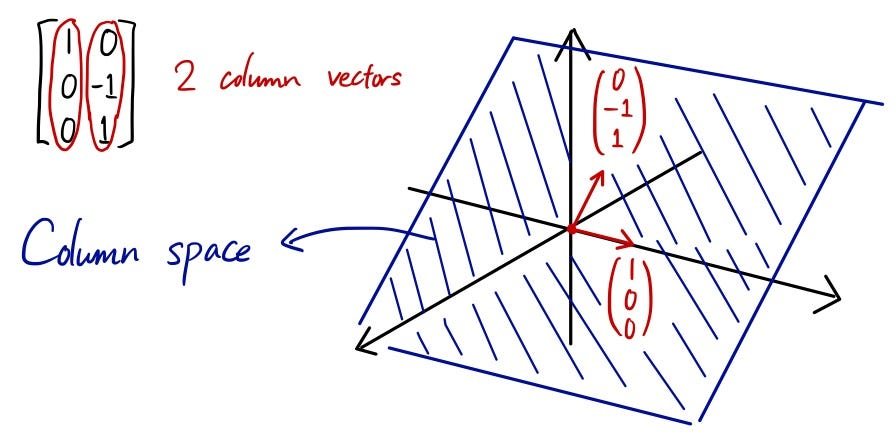 1 0
0 -1
0 1
2 column vectors
Column space
0
-1
1
1
0
0